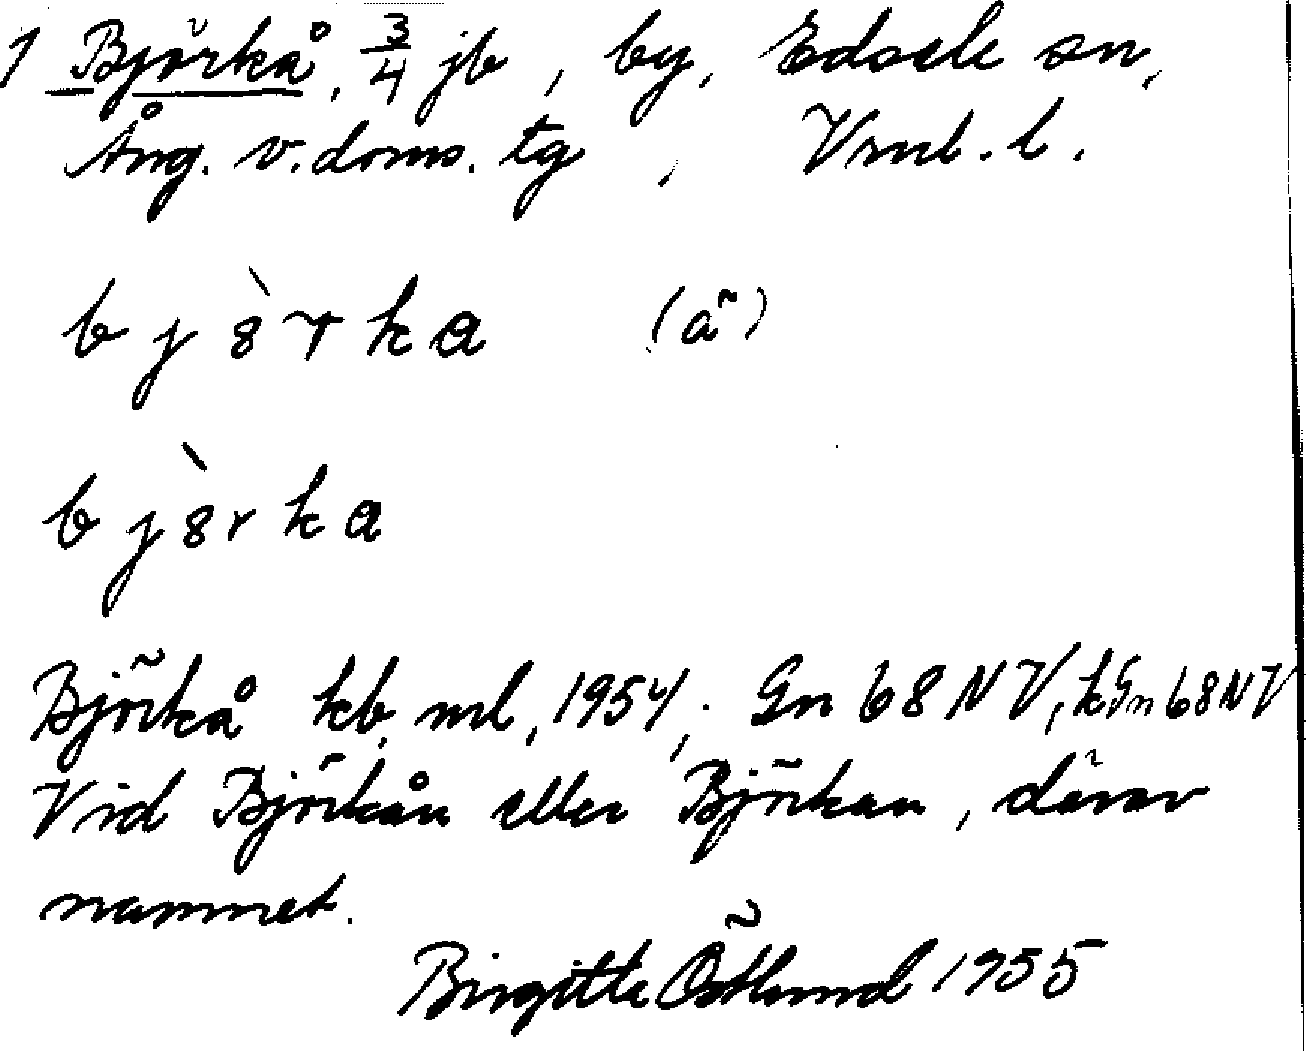 1 Björkå, 3/4 jb, by, Edsele sn,
Ång. v. doms. tg, Vrnl. l.
bj8̀rka (ä)
bj8̀rka
Björkå kb, ml, 1954; Gn 68 NV, kGn 68 NV
Vid Björkån eller Björkan, därav
namnet.
Birgitta Östlund 1955